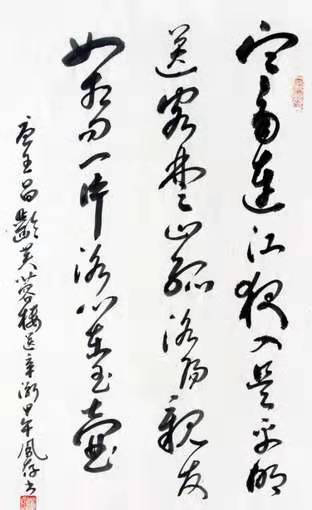 寒雨連江夜入吳平明
送客楚山孤洛陽親友
如相問一片冰心在玉壺
唐王昌齡芙蓉樓送辛漸甲午風存書